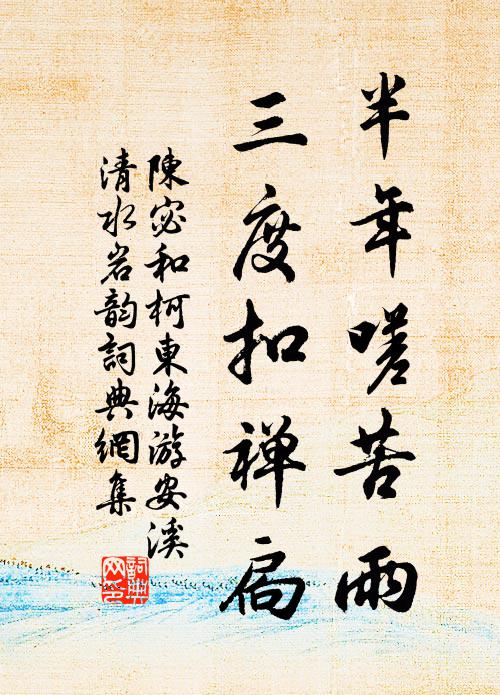 半年嗟苦雨
三度扣禅扃
陳宓和柯東海游安溪
清水岩韵詞典網集
詞典
网